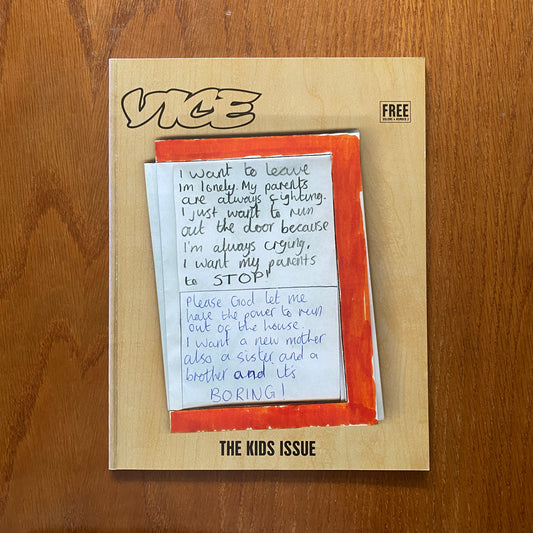 VICE
FREE
VOLUME 4 NUMBER 2
I want to leave
Im lonely. My parents
are always fighting.
I just want to run
out the door because
I'm always crying,
I want my parents
to STOP!
Please God let me
have the power to run
out of the house.
I want a new mother
also a sister and a
brother and its
BORING!
THE KIDS ISSUE